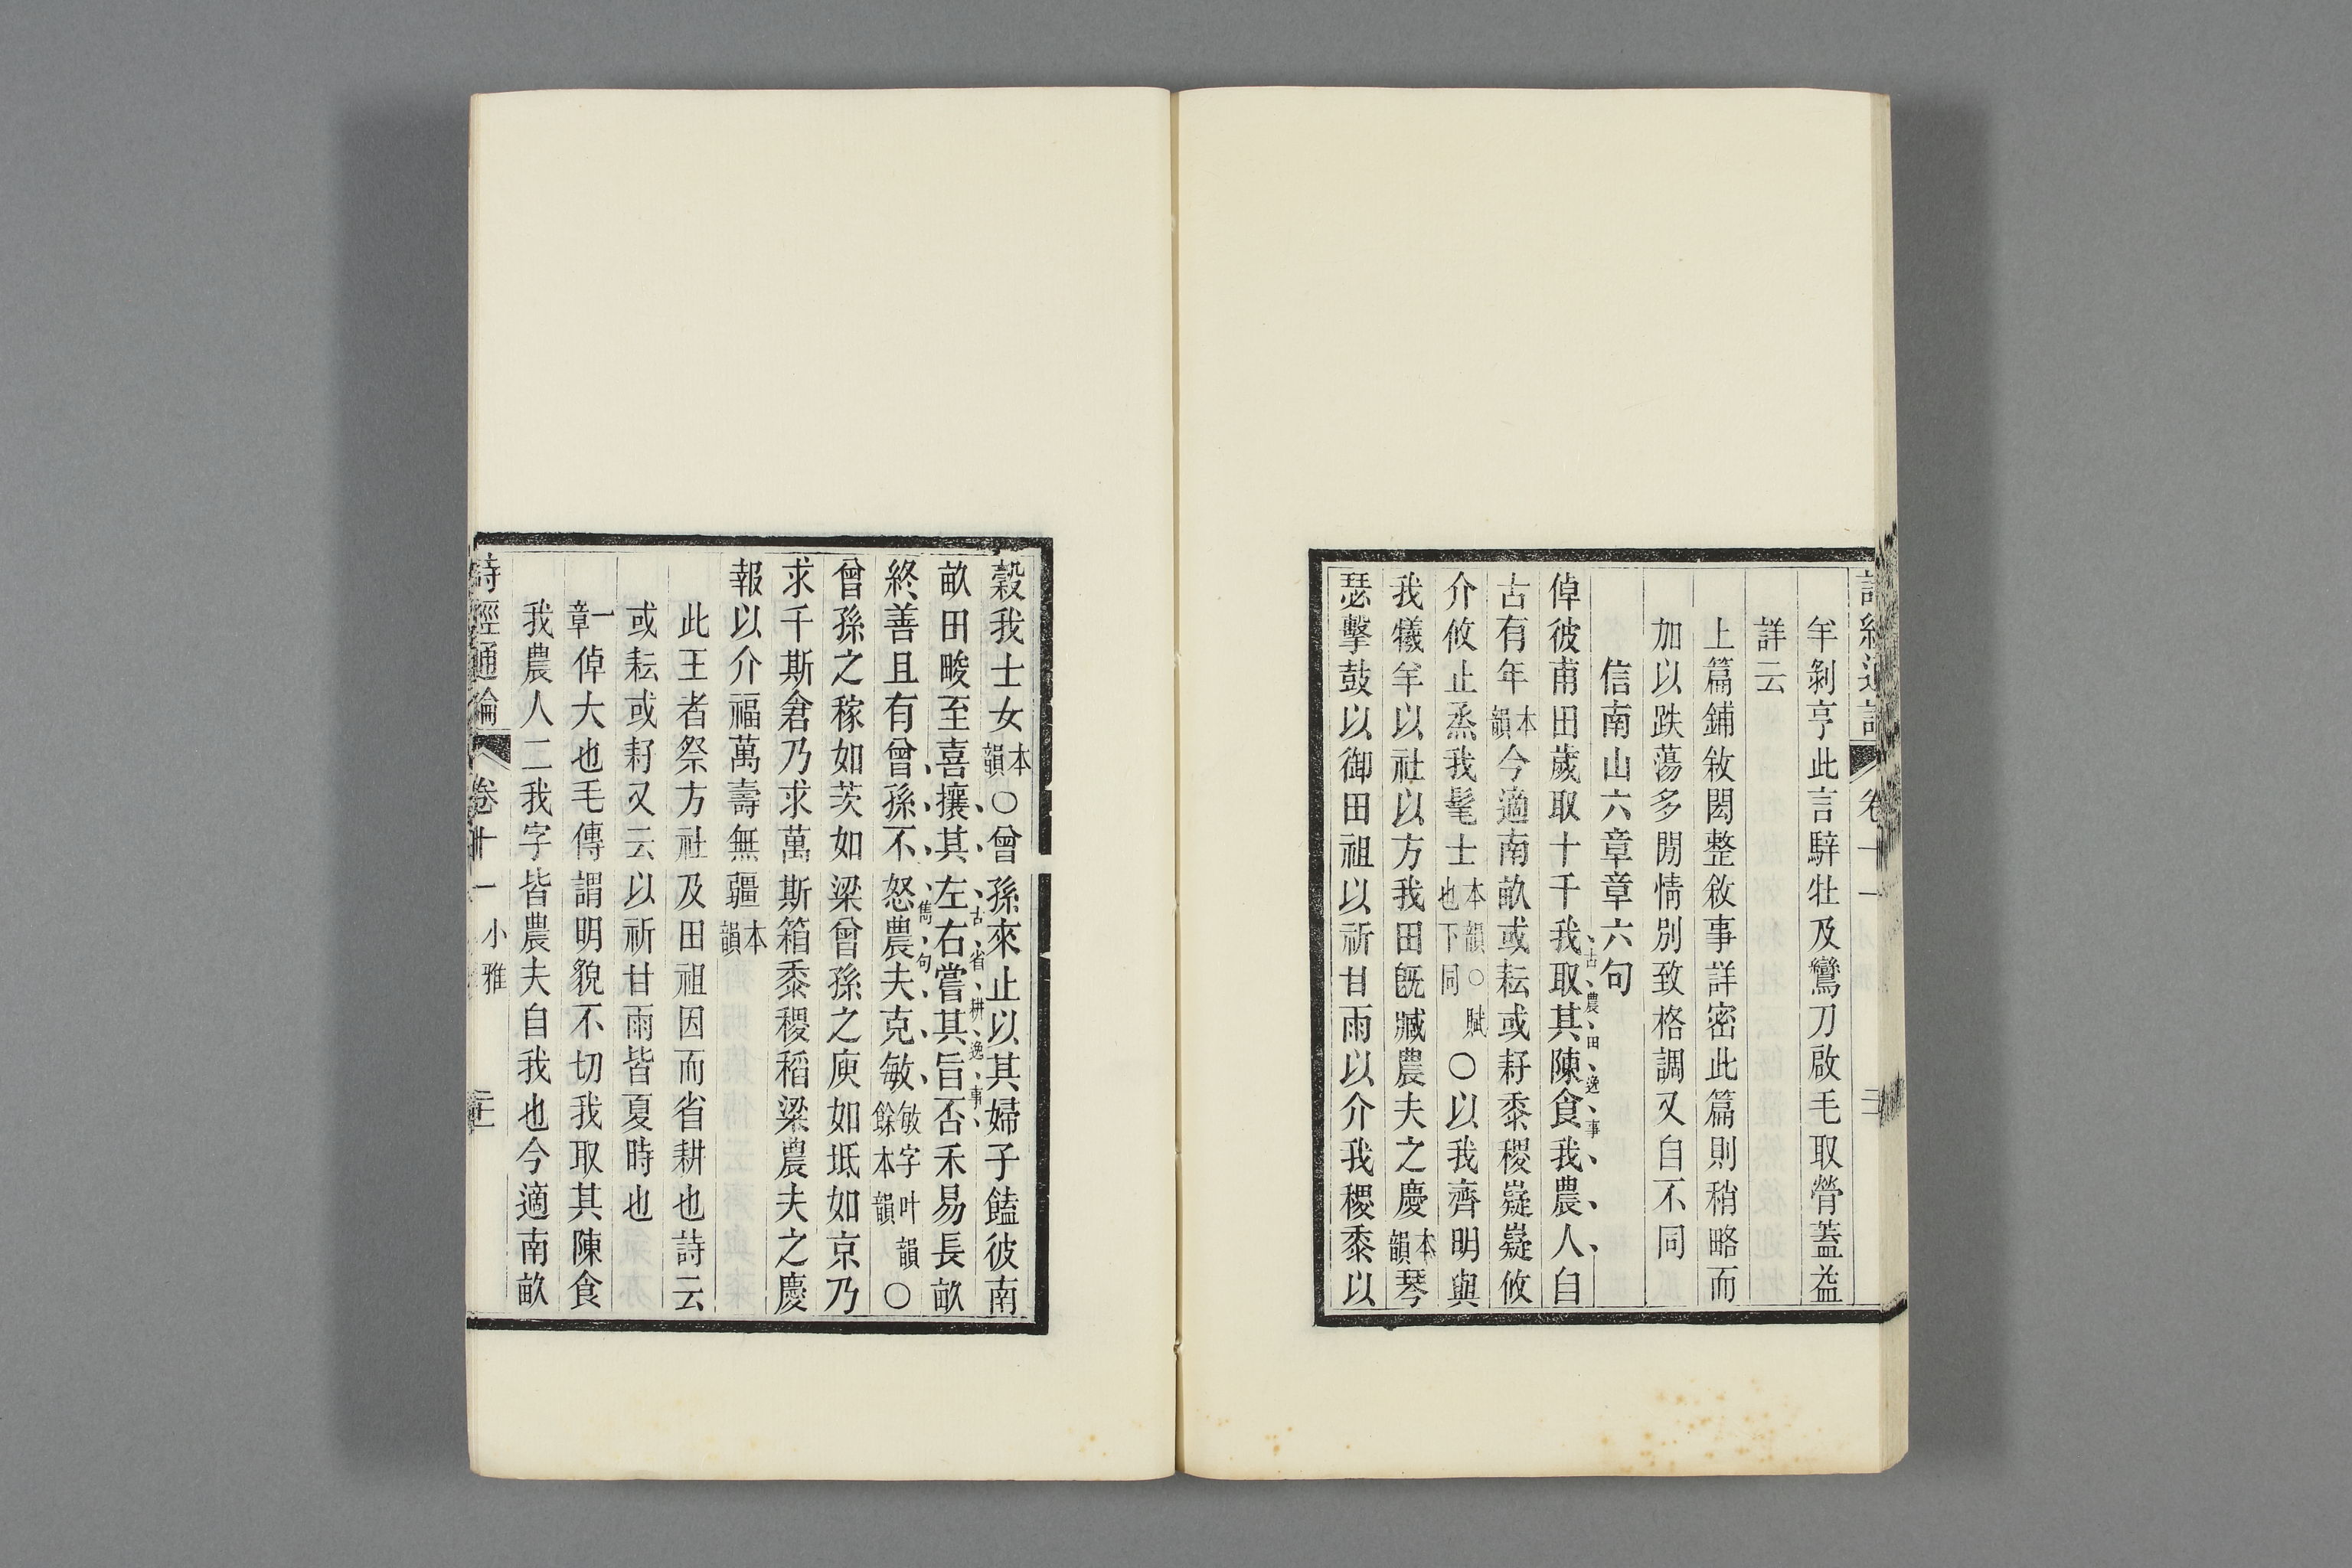 羊剝亨此言騂牡及鸞刀啟毛取膋蓋益
詳云
上篇鋪敘閎整敘事詳密此篇則稍略而
加以跌蕩多閒情別致格調又自不同
信南山六章章六句
倬彼甫田歲取十千我取其陳食我農人自
古農田逸事
古有年本韻今適南畝或耘或耔黍稷嶷嶷攸
介攸止烝我髦士本韻○賦也下同○以我齊明與
我犧羊以社以方我田旣臧農夫之慶本韻琴
瑟擊鼓以御田祖以祈甘雨以介我稷黍以
穀我士女本韻○曾孫來止以其婦子饁彼南
古省耕逸事
畝田畯至喜攘其左右嘗其旨否禾易長畝
雋句
終善且有曾孫不怒農夫克敏敏字叶韻餘本韻○
曾孫之稼如茨如梁曾孫之庾如坻如京乃
求千斯倉乃求萬斯箱黍稷稻梁農夫之慶
報以介福萬壽無疆本韻
此王者祭方社及田祖因而省耕也詩云
或耘或耔又云以祈甘雨皆夏時也
一章倬大也毛傳謂明貌不切我取其陳食
我農人二我字皆農夫自我也今適南畝
詩經通論 卷十一 小雅